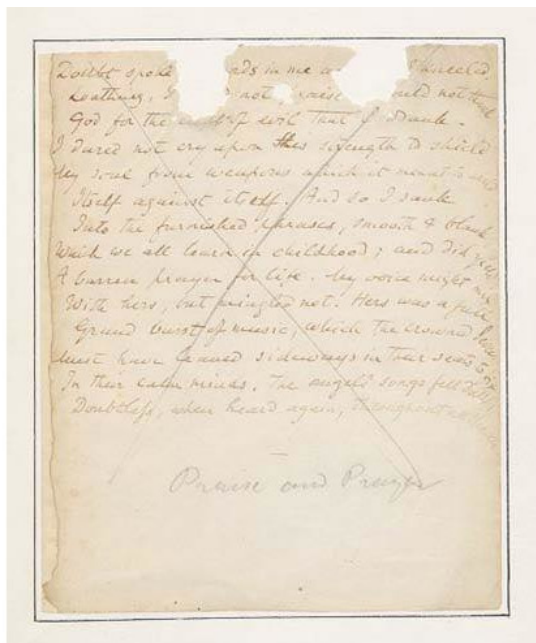 Doubt spoke ds in me kneeled
Loathing. not raise ld not thank
God for the of evil that I drank.
I dared not cry upon His strength to shield
My soul from weapons which it meant to wield
Itself against itself. And so I sank
Into the furnished phrases, smooth & blank
Which we all learn in childhood; and did yield
A barren prayer for life. My voice might mix
With hers, but mingled not. Hers was a full
Grand burst of music, which the crowned
Must have leaned sideways in their seats to fix
In their calm minds. The angel's songs fell
Doubtless, when heard again, throughout
Praise and Prayer